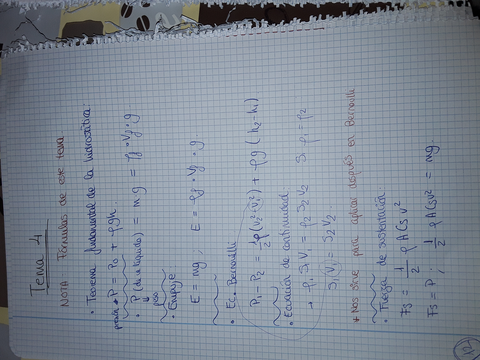 Tema 1
NOTA Fórmulas de este tema
• Teorema fundamental de la hidrostática
presión * P = P₀ + ρgh
• P (de un líquido) = mg = ρf · Vf · g
↓
peso
• Empuje
E = mg E = ρf · Vf · g
• Ec. Bernouilli
P₁ - P₂ = ½ρ(v₂² - v₁²) + ρg (h₂ - h₁)
• Ecuación de continuidad
→ ρ₁ S₁ V₁ = ρ₂ S₂ V₂ Si ρ₁ = ρ₂
S₁V₁ = S₂V₂
* Nos sirve para aplicar después en Bernouille
• Fuerza de sustentación
Fs = ½ ρ A Cs v²
Fs = P ; ½ ρ A Cs v² = mg